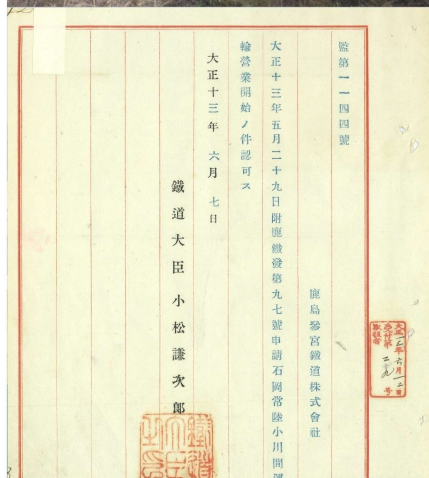 監第一一四四號
鹿島參宮鐵道株式會社
大正十三年五月二十九日附鹿鐵發第九七號申請石岡常陸小川間運
輸營業開始ノ件認可ス
大正十三年六月七日
鐵道大臣 小松謙次郎
鐵道大臣之印